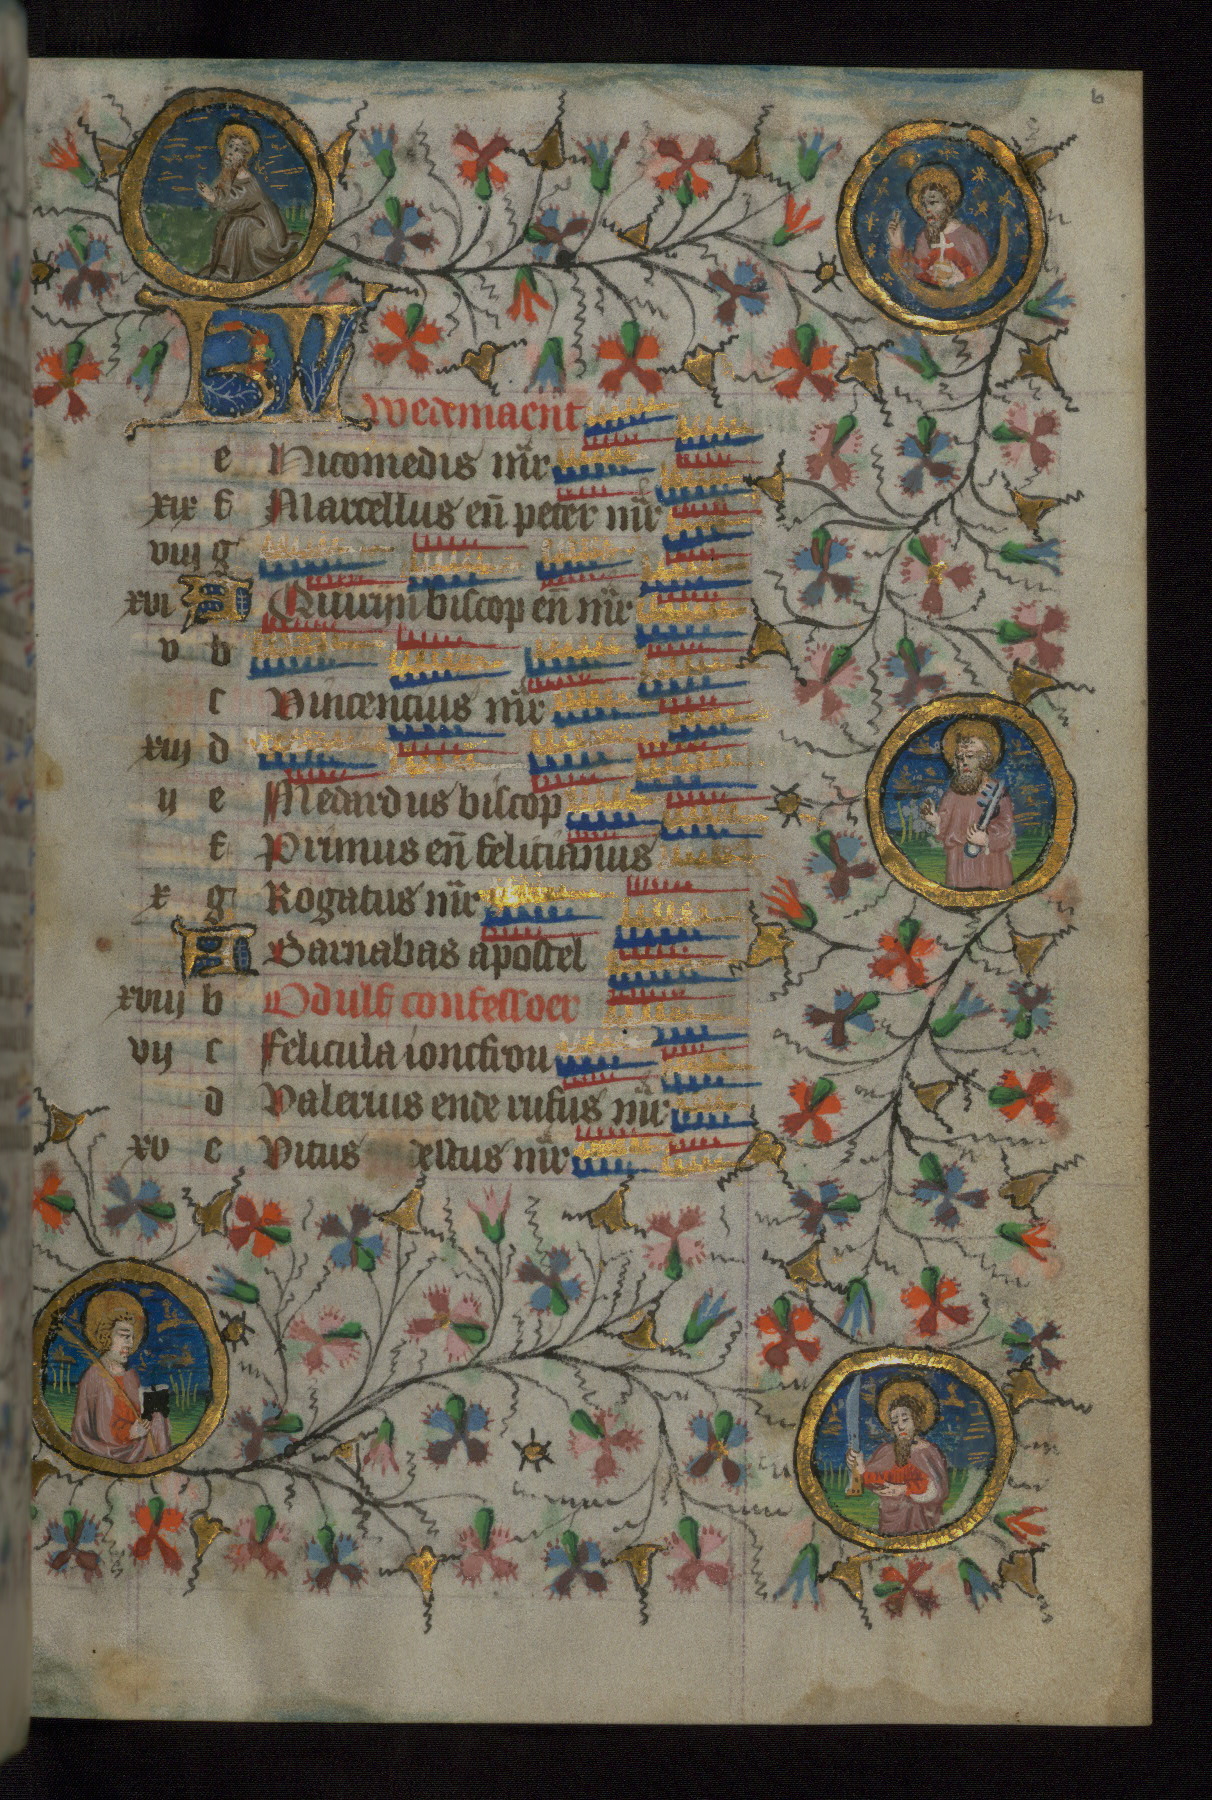 6
KL wedemaent
e Nicomedis mr̄
xix f Marcellus en̄ peter mr̄
viij g
xvi A Quirijn biscop en̄ mr̄
v b
c Vincencius mr̄
xiij d
ij e Medardus biscop
f Primus en̄ felicianus
x g Rogatus mr̄
A Barnabas apostel
xviij b Odulf confessoer
vij c Felicula ioncfrou
d Valerius ende rufus mr̄
xv e Vitus mr̄